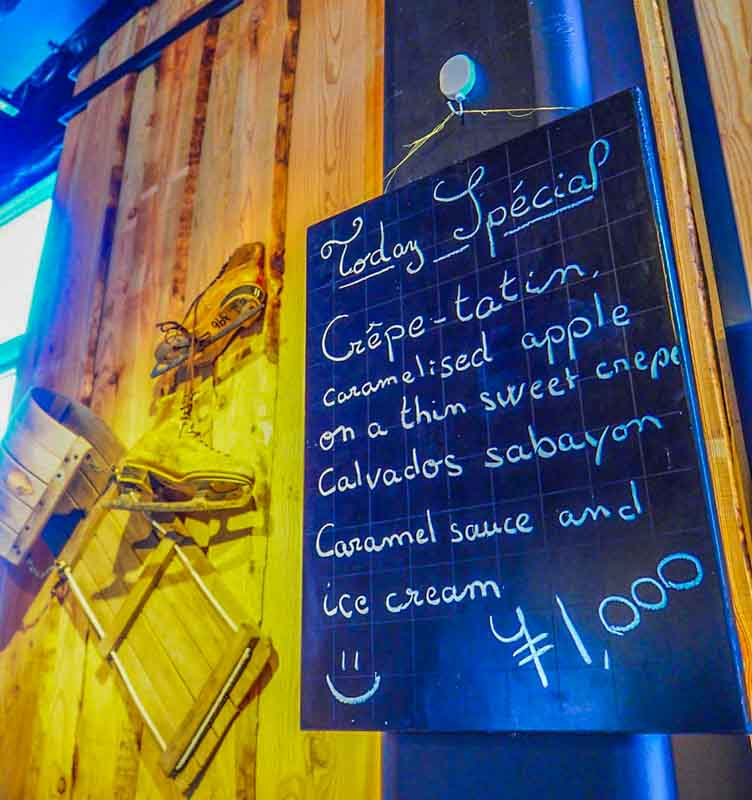 Today Spécial
Crêpe-tatin,
caramelised apple
on a thin sweet crepe
Calvados sabayon
Caramel sauce and
ice cream
¥1,000